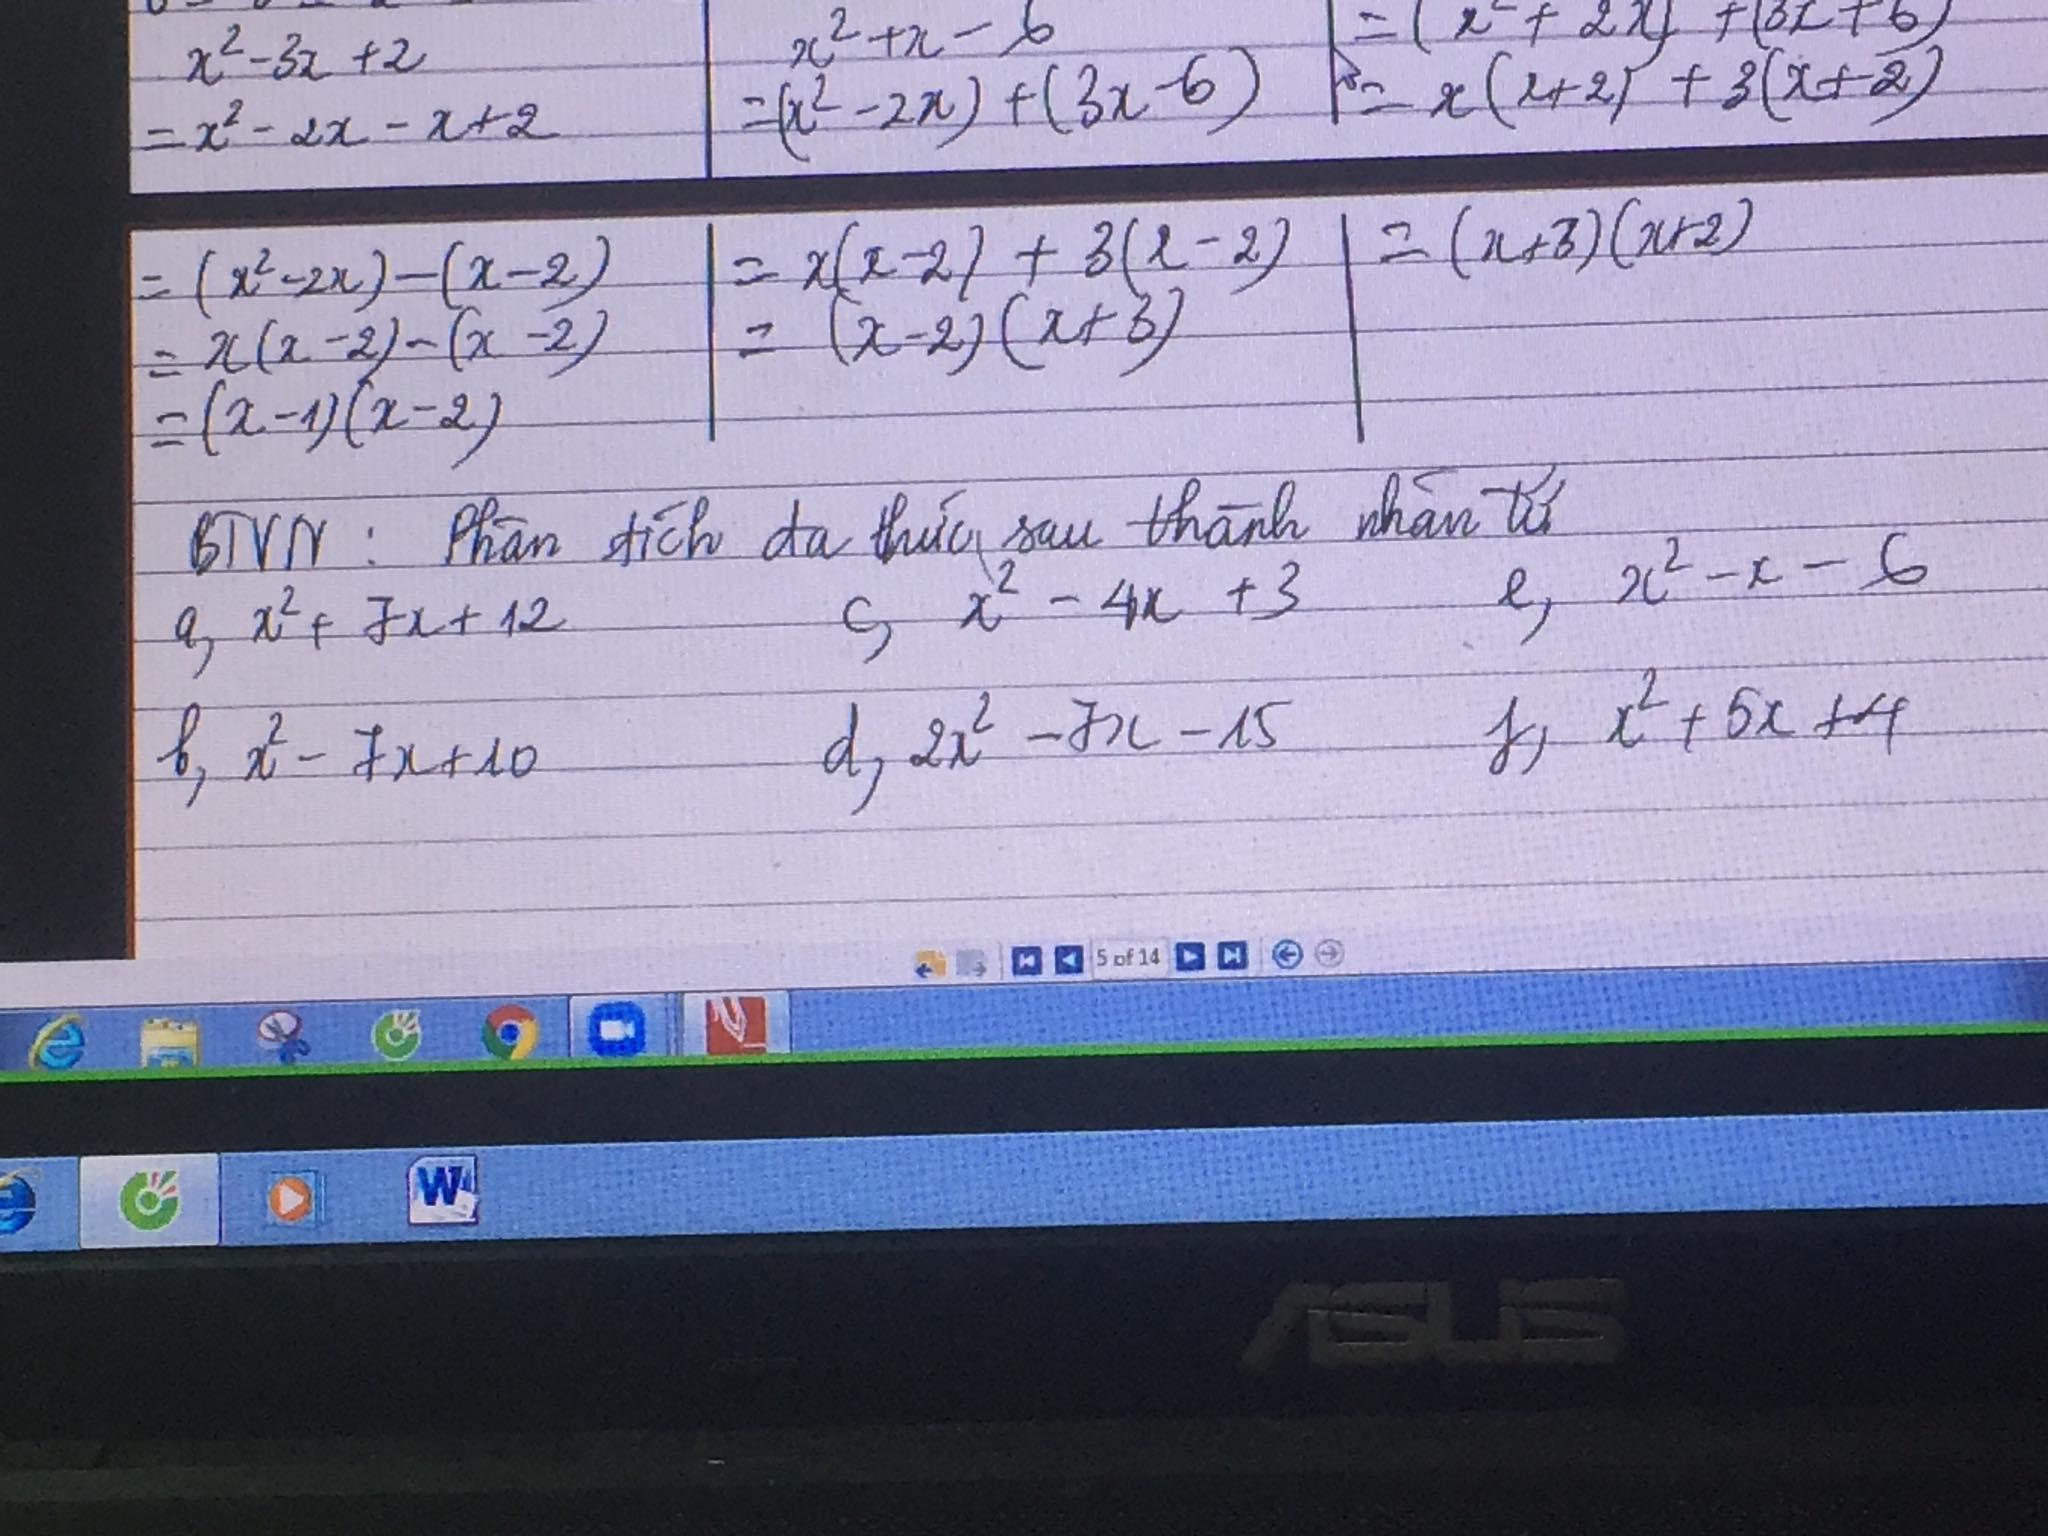 x² - 3x + 2
= x² - 2x - x + 2
x² + x - 6
= (x² - 2x) + (3x - 6)
= (x² + 2x) + (3x + 6)
= x(x+2) + 3(x+2)
= (x² - 2x) - (x - 2)
= x(x - 2) - (x - 2)
= (x - 1)(x - 2)
= x(x - 2) + 3(x - 2)
= (x - 2)(x + 3)
= (x+3)(x+2)
BTVN : Phân tích đa thức sau thành nhân tử
a, x² + 7x + 12 c, x² - 4x + 3 e, x² - x - 6
b, x² - 7x + 10 d, 2x² - 7x - 15 f, x² + 5x + 4
5 of 14
W
ASUS